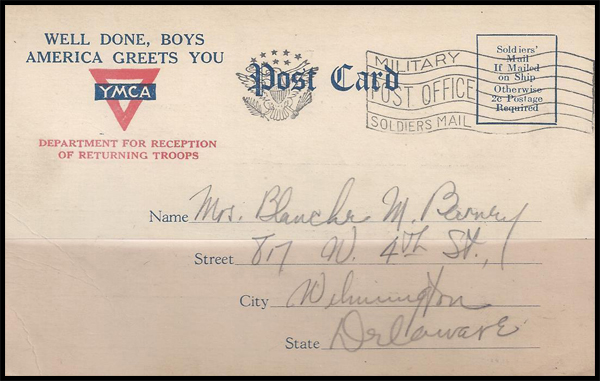 WELL DONE, BOYS
AMERICA GREETS YOU
YMCA
DEPARTMENT FOR RECEPTION
OF RETURNING TROOPS
Post Card
MILITARY
POST OFFICE
SOLDIERS MAIL
Soldiers'
Mail
If Mailed
on Ship
Otherwise
2c Postage
Required
Name Mrs. Blanche M. Barney
Street 817 W. 4TH St.,
City Wilmington
State Delaware